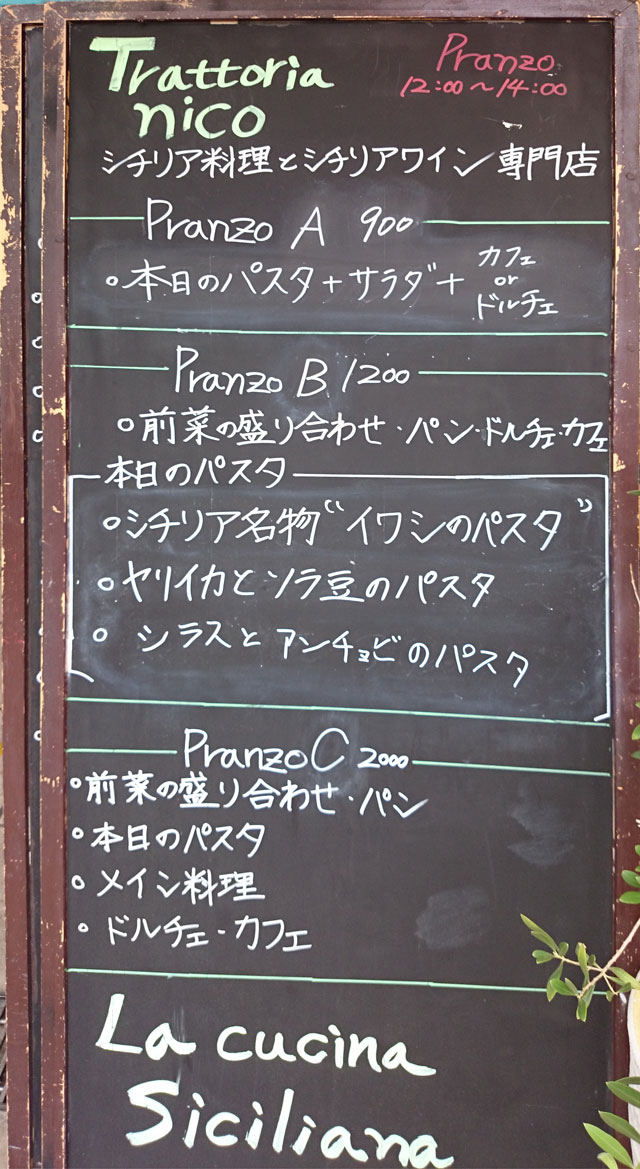 Trattoria
nico
Pranzo
12:00〜14:00
シチリア料理とシチリアワイン専門店
Pranzo A 900
○本日のパスタ+サラダ+カフェ
or
ドルチェ
Pranzo B 1200
○前菜の盛り合わせ・パン・ドルチェ・カフェ
本日のパスタ
○シチリア名物“イワシのパスタ”
○ヤリイカとソラ豆のパスタ
○シラスとアンチョビのパスタ
Pranzo C 2000
○前菜の盛り合わせ・パン
○本日のパスタ
○メイン料理
○ドルチェ・カフェ
La cucina
Siciliana